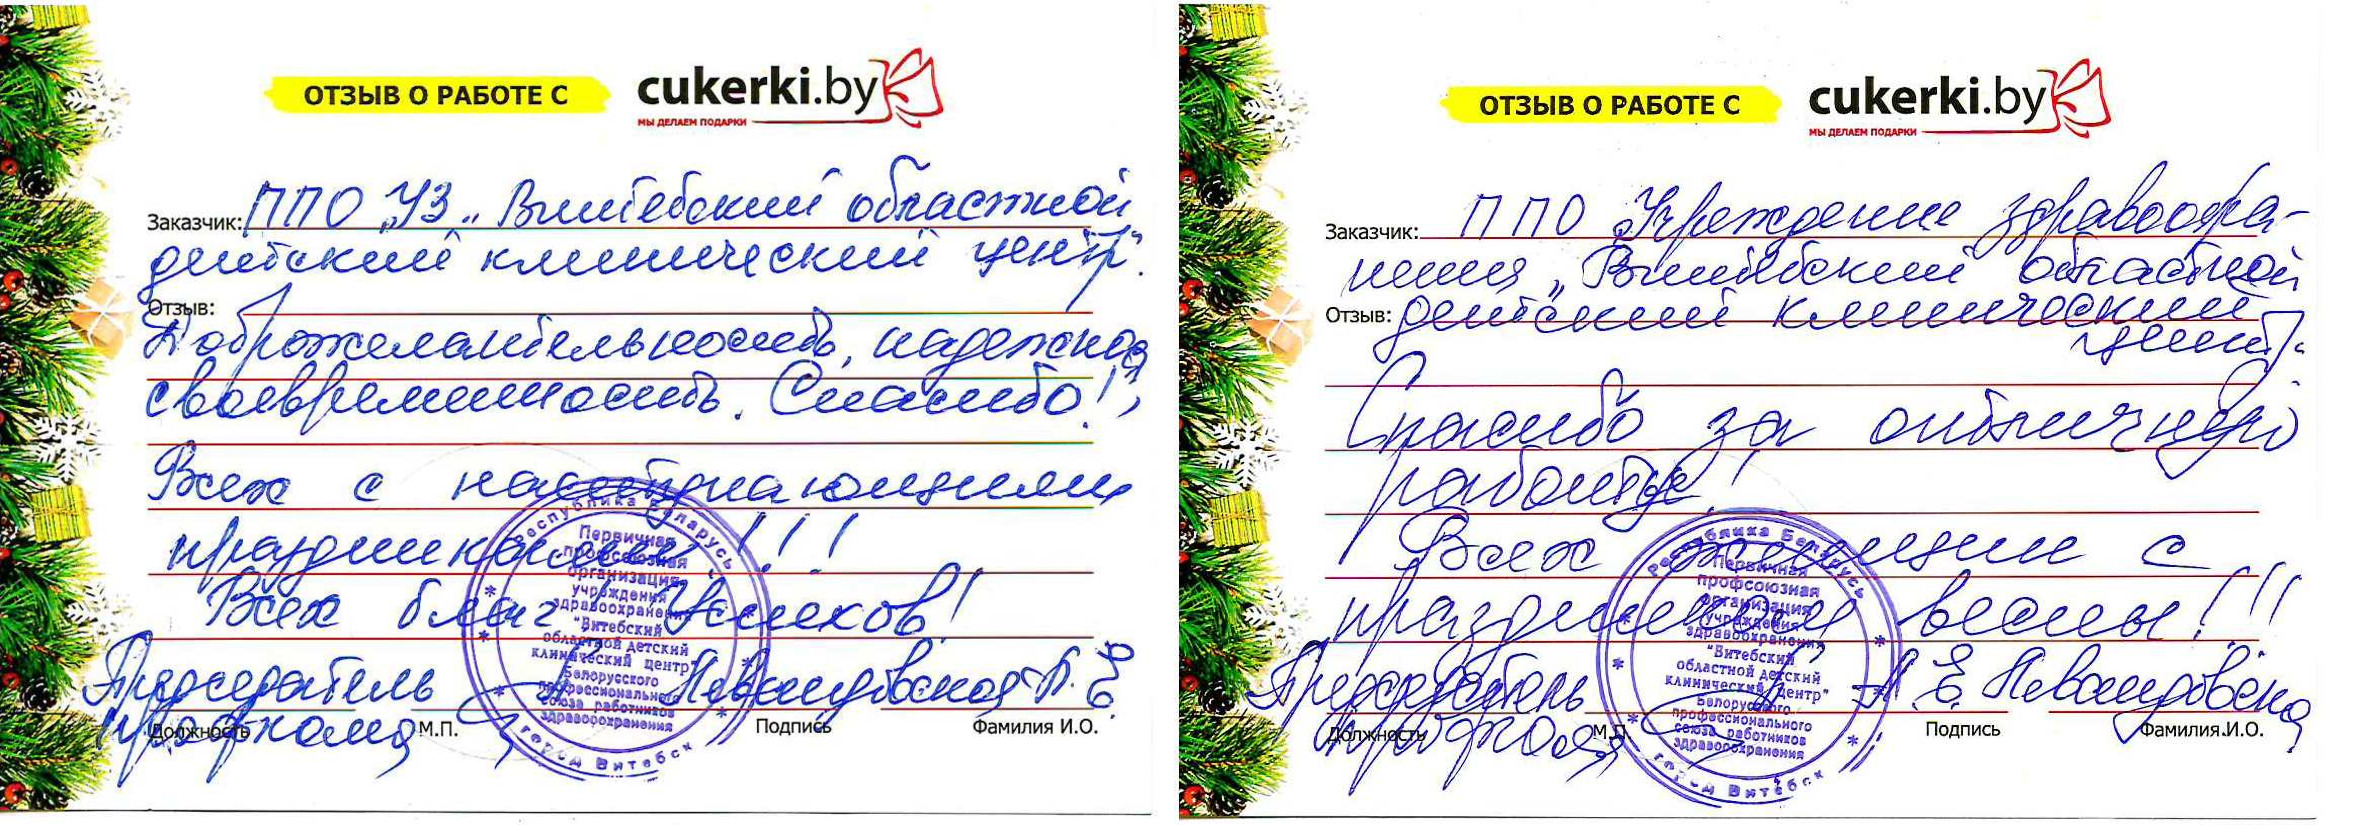 ОТЗЫВ О РАБОТЕ С
cukerki.by
МЫ ДЕЛАЕМ ПОДАРКИ
Заказчик: ППО "УЗ „Витебский областной
детский клинический центр".
Отзыв:
Доброжелательность, надежность,
своевременность. Спасибо!
Всех с наступающими
праздниками!!!
Всех благ, Успехов!
Председатель Левандовская Л.Е.
профкома
Должность М.П. Подпись Фамилия И.О.
Республика Беларусь
Первичная
профсоюзная
организация
учреждения
здравоохранения
"Витебский
областной детский
клинический центр"
Белорусского
профессионального
союза работников
здравоохранения
город Витебск
ОТЗЫВ О РАБОТЕ С
cukerki.by
МЫ ДЕЛАЕМ ПОДАРКИ
Заказчик: ППО „Учреждение здравоохра-
нения „Витебский областной
Отзыв: детский клинический
центр".
Спасибо за отличную
работу!
Всех женщин с
праздником весны!!!
Председатель Л.Е. Левандовская
профкома
Должность М.П. Подпись Фамилия И.О.
Республика Беларусь
Первичная
профсоюзная
организация
учреждения
здравоохранения
"Витебский
областной детский
клинический центр"
Белорусского
профессионального
союза работников
здравоохранения
город Витебск